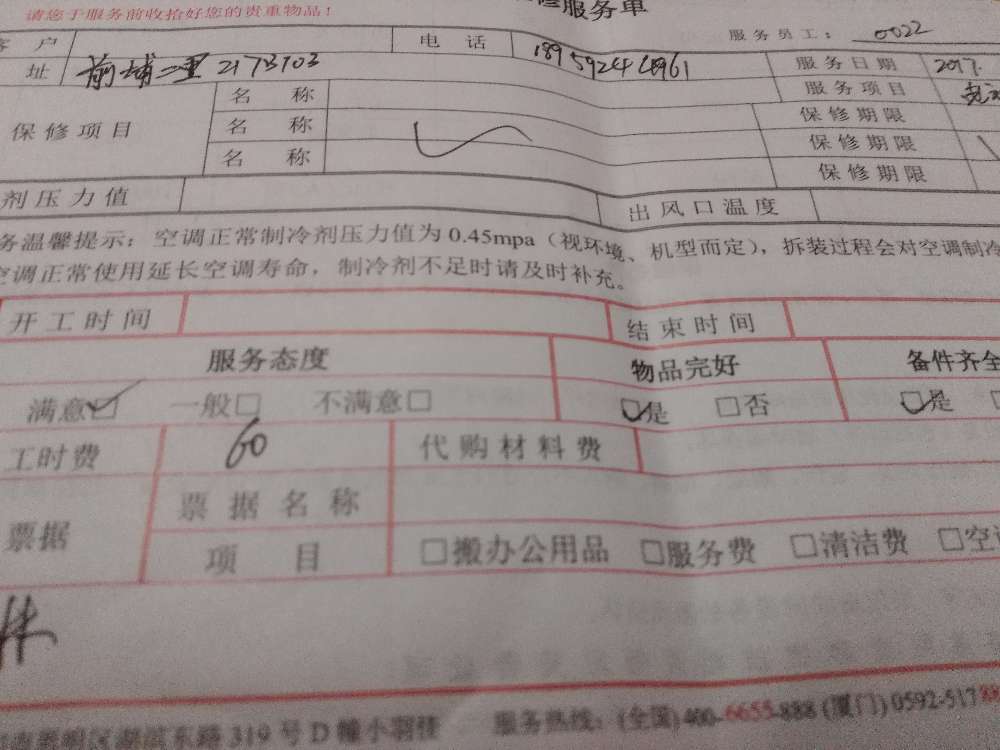 请您于服务前收拾好您的贵重物品！ 修服务单
服务员工： 0022
客 户 电 话 服务日期 2017.
址 前埔二里217号103 服务项目
保修项目 名 称 保修期限
名 称 保修期限
名 称 保修期限
剂压力值 出风口温度
务温馨提示：空调正常制冷剂压力值为0.45mpa（视环境、机型而定），拆装过程会对空调制冷
空调正常使用延长空调寿命，制冷剂不足时请及时补充。
开工时间 结束时间
服务态度 物品完好 备件齐全
满意☑ 一般□ 不满意□ ☑是 □否 ☑是
工时费 60 代购材料费
票据 票据名称
项 目 □搬办公用品 □服务费 □清洁费 □空
东路319号D幢小羽佳 服务热线：(全国)400-6655-888 (厦门)0592-517